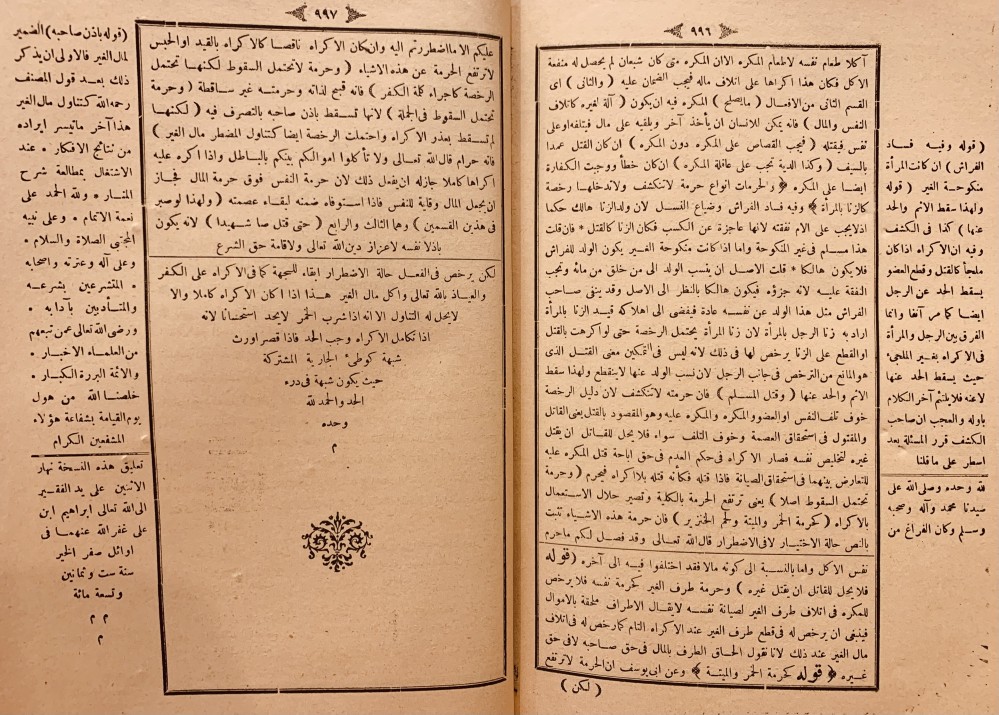 ٩٩٦
آكلا طعام نفسه لاطعام المكره الا ان المكره متى كان شبعان لم يحصل له منفعة
الاكل فكان هذا اكراها على اتلاف ماله فيجب الضمان عليه ( والثانى ) اى
القسم الثانى من الافعال ( مايصلح ) المكره فيه ان يكون ( آلة لغيره كاتلاف
النفس والمال ) فانه يمكن للانسان ان يأخذ آخر ويلقيه على مال فيتلفه اوعلى
نفس فيقتله ( فيجب القصاص على المكره دون المكره ) ان كان القتل عمدا
بالسيف ( وكذا الدية تجب على عاقلة المكره ) ان كان خطأ ووجبت الكفارة
ايضا على المكره ﴿ والحرمات انواع حرمة لاتنكشف ولا تدخلها رخصة
كالزنا بالمرأة ﴾ وفيه فساد الفراش وضياع النسل لان ولد الزنا هالك حكما
اذلا يجب على الام نفقته لانها عاجزة عن الكسب فكان الزنا كالقتل * فان قلت
هذا مسلم فى غير المنكوحة واما اذا كانت منكوحة الغير يكون الولد للفراش
فلا يكون هالكا * قلت الاصل ان ينسب الولد الى من خلق من مائه وتجب
النفقة عليه لانه جزؤه فيكون هالكا بالنظر الى الاصل وقد ينفى صاحب
الفراش مثل هذا الولد عن نفسه عادة فيفضى الى اهلاكه قيد الزنا بالمرأة
اراد به زنا الرجل بالمرأة لان زنا المرأة يحتمل الرخصة حتى لو اكرهت بالقتل
اوالقطع على الزنا يرخص لها فى ذلك لانه ليس فى التمكين معنى القتل الذى
هو المانع من الترخص فى جانب الرجل لان نسب الولد عنها لا ينقطع ولهذا سقط
الاثم والحد عنها ( وقتل المسلم ) فان حرمته لاتنكشف لان دليل الرخصة
خوف تلف النفس اوالعضو والمكره والمكره عليه وهو المقصود بالقتل يعنى القاتل
والمقتول فى استحقاق العصمة وخوف التلف سواء فلا يحل للقاتل ان يقتل
غيره لتخليص نفسه فصار الاكراه فى حكم العدم فى حق اباحة قتل المكره عليه
للتعارض بينهما فى استحقاق الصيانة فاذا قتله فكأنه قتله بلا اكراه فيحرم ( وحرمة
تحتمل السقوط اصلا ) يعنى ترتفع الحرمة بالكلية وتصير حلال الاستعمال
بالاكراه ( كحرمة الخمر والميتة ولحم الخنزير ) فان حرمة هذه الاشياء تثبت
بالنص حالة الاختيار لا فى الاضطرار قال الله تعالى وقد فصل لكم ماحرم
نفس الاكل واما بالنسبة الى كونه مالا فقد اختلفوا فيه الى آخره ( قوله
فلا يحل للقاتل ان يقتل غيره ) وحرمة طرف الغير كحرمة نفسه فلا يرخص
للمكره فى اتلاف طرف الغير لصيانة نفسه لايقال الاطراف ملحقة بالاموال
فينبغى ان يرخص له فى قطع طرف الغير عند الاكراه التام كما رخص له فى اتلاف
مال الغير عند ذلك لانا نقول الحاق الطرف بالمال فى حق صاحبه لا فى حق
غيره ﴿ قوله كحرمة الخمر والميتة ﴾ وعن ابى يوسف ان الحرمة لاترتفع
( لكن )
( قوله وفيه فساد
الفراش ) ان كانت المرأة
منكوحة الغير ( قوله
ولهذا سقط الاثم والحد
عنها ) كذا فى الكشف
وفيه ان الاكراه اذا كان
ملجأ كالقتل وقطع العضو
يسقط الحد عن الرجل
ايضا كما مر آنفا وانما
الفرق بين الرجل والمرأة
فى الاكراه بغير الملجئ
حيث يسقط الحد عنها
لاعنه فلا يلتئم آخر الكلام
باوله والعجب ان صاحب
الكشف قرر المسئلة بعد
اسطر على ماقلنا
لله وحده وصلى الله على
سيدنا محمد وآله وصحبه
وسلم وكان الفراغ من
٩٩٧
عليكم الا ما اضطررتم اليه وان كان الاكراه ناقصا كالاكراه بالقيد اوالحبس
لاترتفع الحرمة عن هذه الاشياء ( وحرمة لاتحتمل السقوط لكنها تحتمل
الرخصة كاجراء كلة الكفر ) فانه قبيح لذاته وحرمته غير ساقطة ( وحرمة
تحتمل السقوط فى الجملة ) لانها تسقط باذن صاحبه بالتصرف فيه ( لكنها
لم تسقط بعذر الاكراه واحتملت الرخصة ايضا كتناول المضطر مال الغير )
فانه حرام قال الله تعالى ولا تأكلوا اموالكم بينكم بالباطل واذا اكره عليه
اكراها كاملا جازله ان يفعل ذلك لان حرمة النفس فوق حرمة المال فجاز
ان يجعل المال وقاية للنفس فاذا استوفاه ضمنه لبقاء عصمته ( ولهذا لو صبر
فى هذين القسمين ) وهما الثالث والرابع ( حتى قتل صار شهيدا ) لانه يكون
باذلا نفسه لاعزاز دين الله تعالى ولاقامة حق الشرع
لكن يرخص فى الفعل حالة الاضطرار ابقاء للمهجة كما فى الاكراه على الكفر
والعياذ بالله تعالى واكل مال الغير هذا اذا كان الاكراه كاملا والا
لايحل له التناول الا انه اذا شرب الخمر لايحد استحسانا لانه
اذا تكامل الاكراه وجب الحل فاذا قصر اورث
شبهة كوطئ الجارية المشتركة
حيث يكون شبهة فى درء
الحد والحمد لله
وحده
م
( قوله باذن صاحبه ) الضمير
لمال الغير فالاولى ان يذكر
ذلك بعد قول المصنف
رحمه الله كتناول مال الغير
هذا آخر ماتيسر ايراده
من نتائج الافكار . عند
الاشتغال بمطالعة شرح
المنار . ولله الحمد على
نعمة الاتمام . وعلى نبيه
المجتبى الصلاة والسلام .
وعلى آله وعترته واصحابه
. المتشرعين بشرعه
والمتأدبين بآدابه .
ورضى الله تعالى عمن تبعهم
من العلماء الاخيار .
والائمة البررة الكبار .
خلصنا الله من هول
يوم القيامة بشفاعة هؤلاء
المشفعين الكرام
تعليق هذه النسخة نهار
الاثنين على يد الفقير
الى الله تعالى ابراهيم ابن
على غفر الله عنهما فى
اوائل صفر الخير
سنة ست وثمانين
وتسعة مائة
م م
م